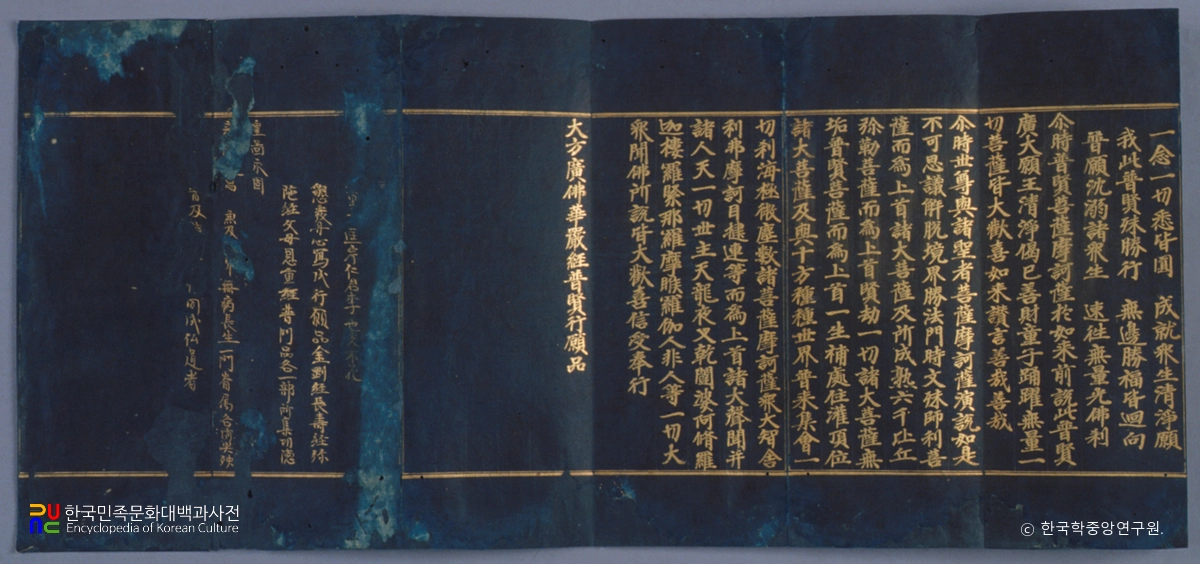 一念一切悉皆圓　成就衆生清淨願
我此普賢殊勝行　無邊勝福皆迴向
普願沈溺諸衆生　速往無量光佛刹
尒時普賢菩薩摩訶薩於如來前說此普賢
廣大願王清淨偈已善財童子踊躍無量一
切菩薩皆大歡喜如來讚言善哉善哉
尒時世尊與諸聖者菩薩摩訶薩演說如是
不可思議解脫境界勝法門時文殊師利菩
薩而爲上首諸大菩薩及所成熟六千比丘
弥勒菩薩而爲上首賢劫一切諸大菩薩無
垢普賢菩薩而爲上首一生補處住灌頂位
諸大菩薩及與十方種種世界普來集會一
切刹海極微塵數諸菩薩摩訶薩衆大智舍
利弗摩訶目揵連等而爲上首諸大聲聞并
諸人天一切世主天龍夜叉乾闥婆阿脩羅
迦樓羅緊那羅摩睺羅伽人非人等一切大
衆聞佛所說皆大歡喜信受奉行
大方廣佛華嚴經普賢行願品
心寫成行願品金剛經長壽經弥
陁經父母恩重經普門品各一部所集功德
長生一門眷属各
한국민족문화대백과사전
Encyclopedia of Korean Culture
ⓒ 한국학중앙연구원.